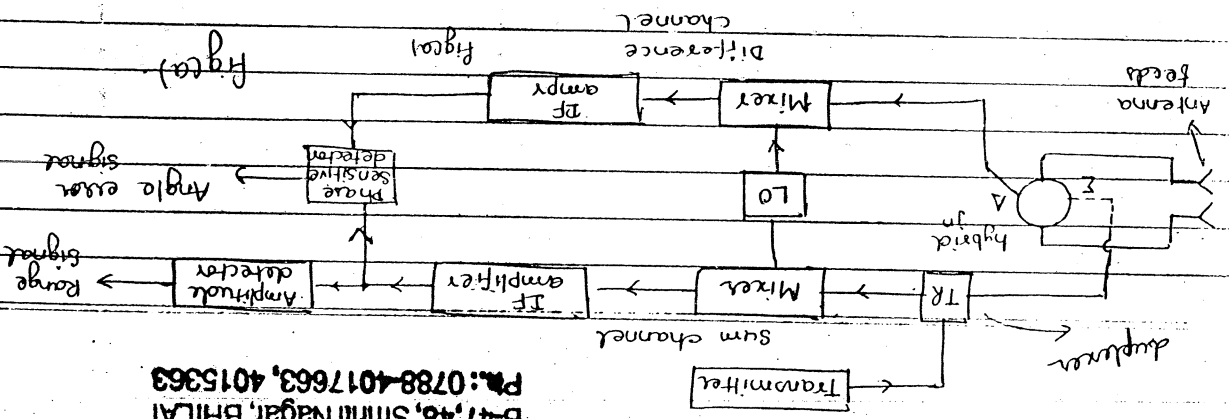 B-47,48, Smriti Nagar, BHILAI
Ph.: 0788-4017663, 4015363
Transmitter
duplexer
Sum channel
TR
Mixer
IF
amplifier
Amplitude
detector
Range
signal
hybrid
jn
Σ
Δ
LO
Phase
Sensitive
detector
Angle error
signal
Antenna
feeds
Mixer
IF
ampr
Difference
channel
fig(a)
fig(a).